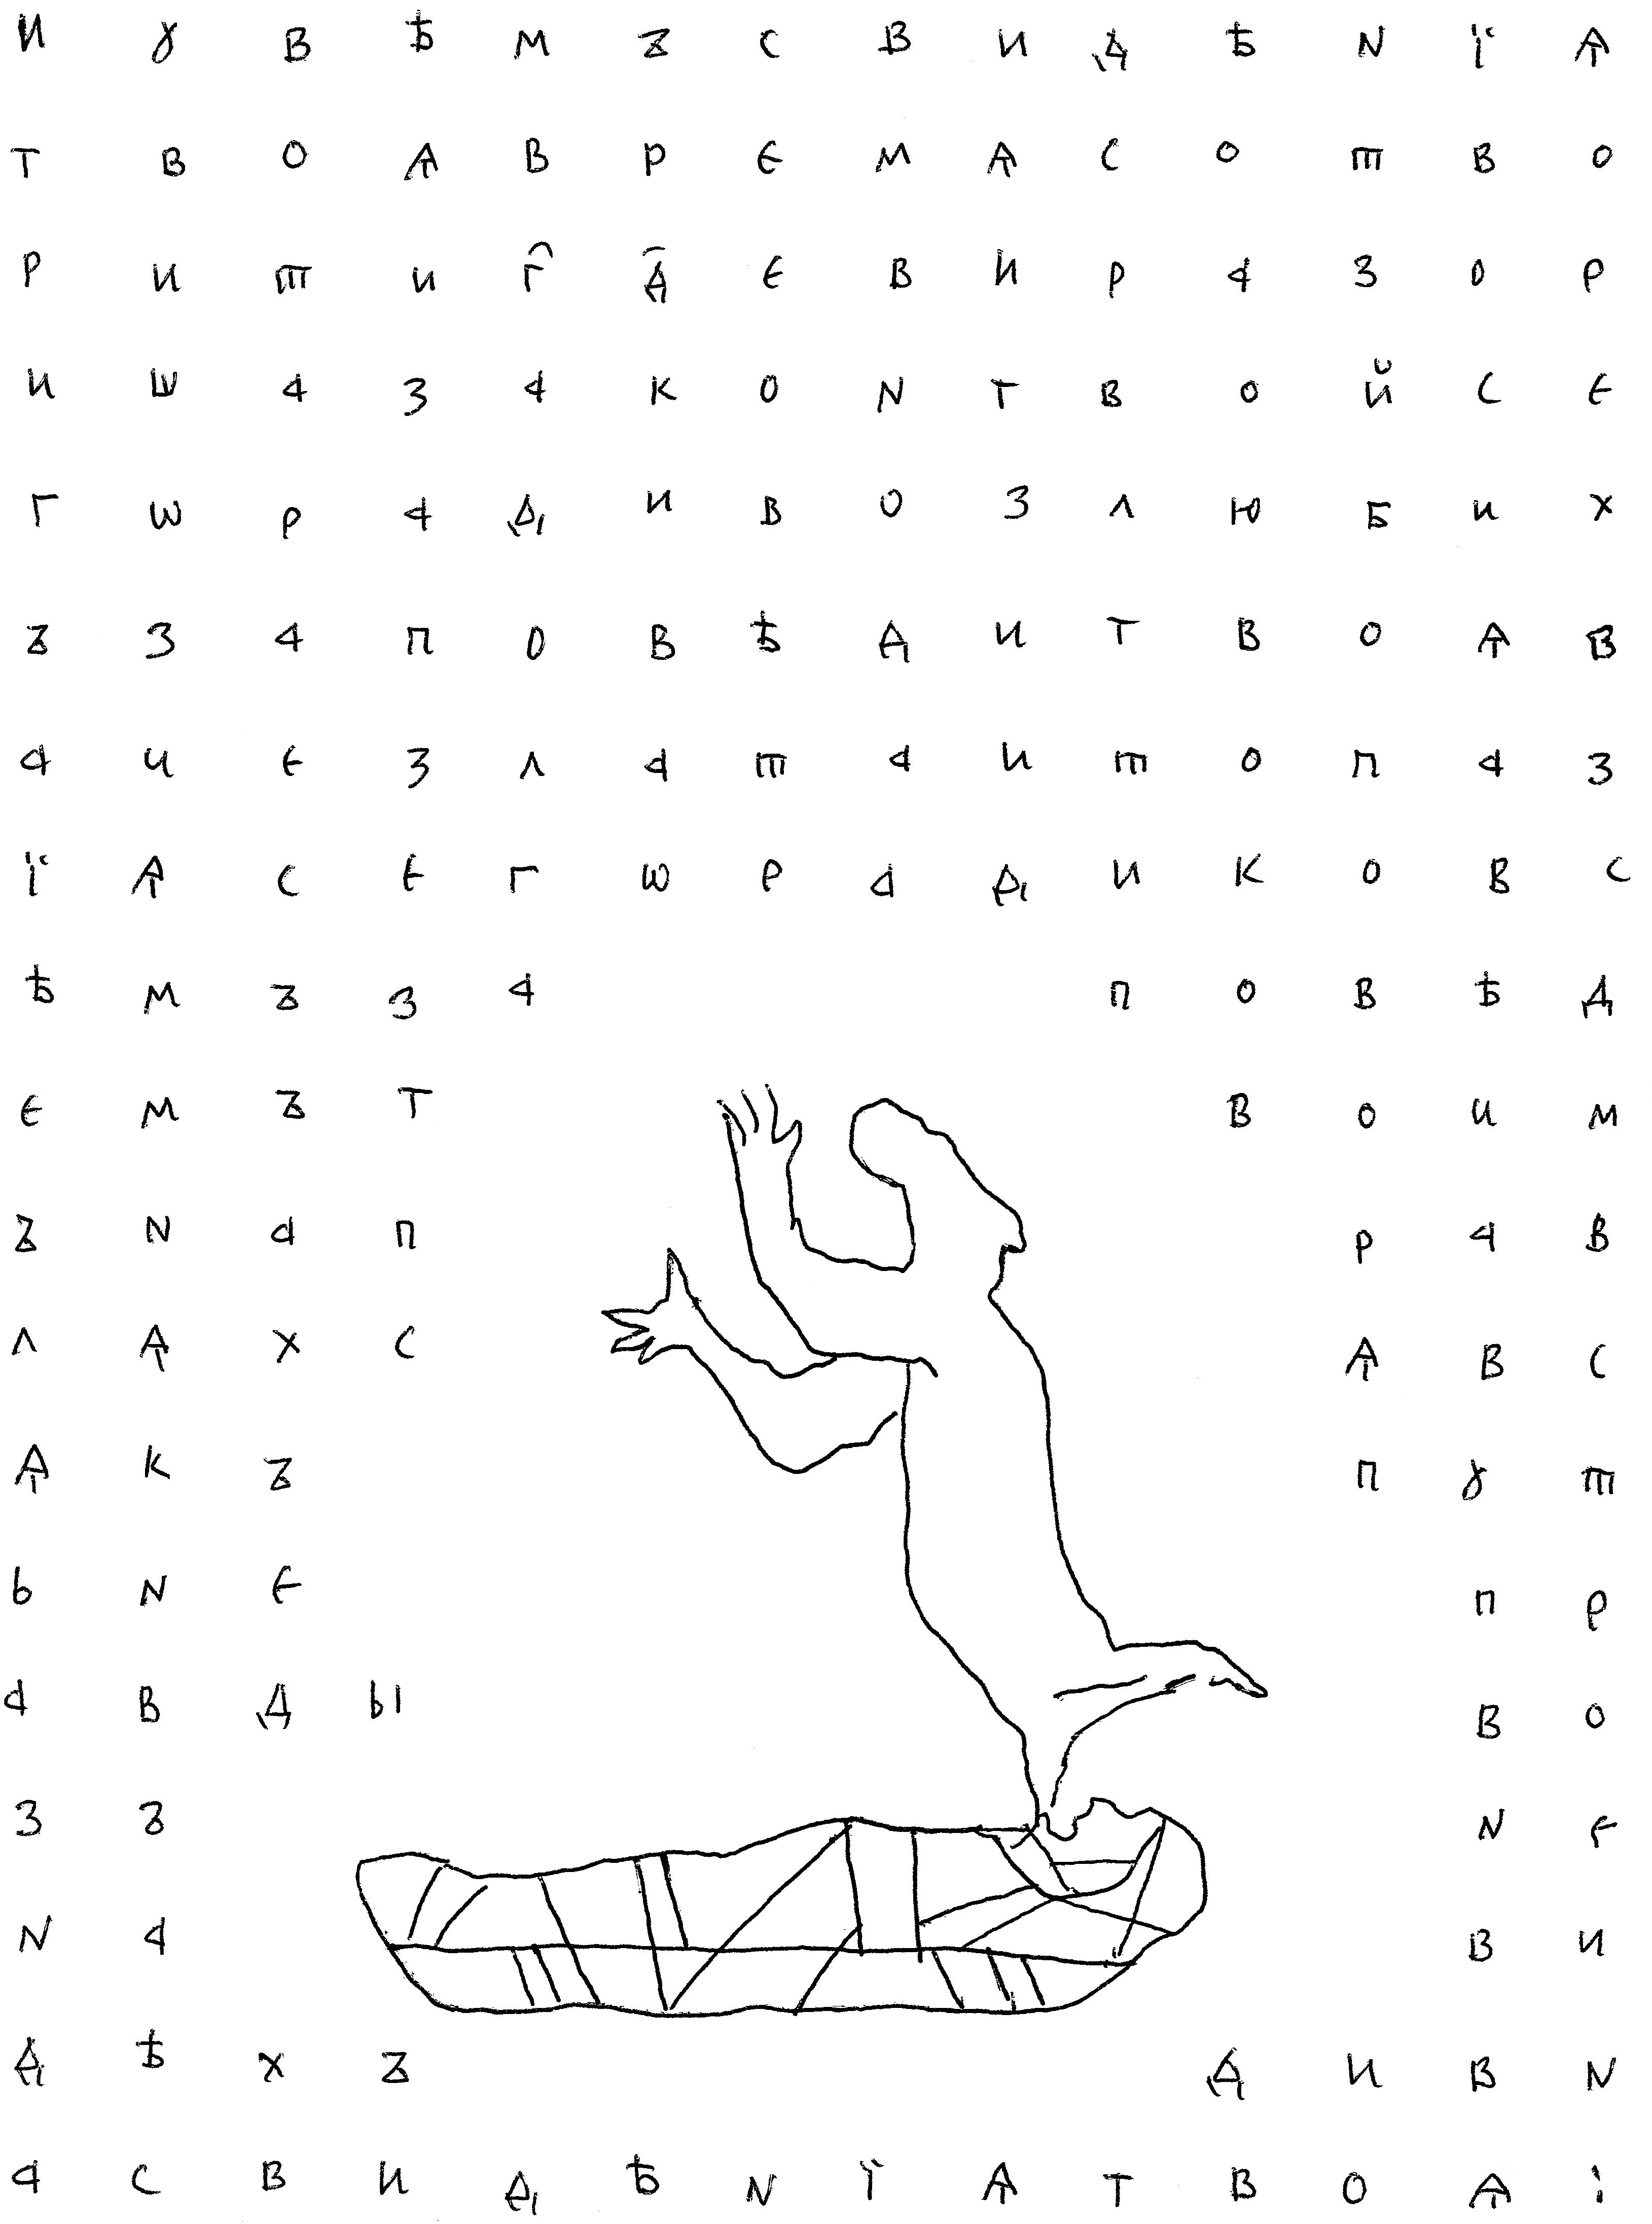 И ꙋ В Ѣ М Ъ С В И Д Ѣ N Ї Ѧ
Т В О Ѧ В Р Є М Ѧ С О Т В О
Р И Т И Г̑ Д̑ Є В И Р А З О Р
И Ш А З А К О N Т В О Й С Є
Г Ѡ Р А Д И В О З Л Ю Б И Х
Ъ З А П О В Ѣ Д И Т В О Ѧ В
А Ч Є З Л А Т А И Т О П А З
Ї Ѧ С Є Г Ѡ Р А Д И К О В С
Ѣ М Ъ З А П О В Ѣ Д
Є М Ъ Т В О И М
Ъ N А П Р А В
Л Ѧ Х С Ѧ В С
Ѧ К Ъ П ꙋ Т
Ь N Є П Р
А В Д Ы В О
З Ъ N Є
N А В И
Д Ѣ Х Ъ Д И В N
А С В И Д Ѣ N Ї Ѧ Т В О Ѧ :